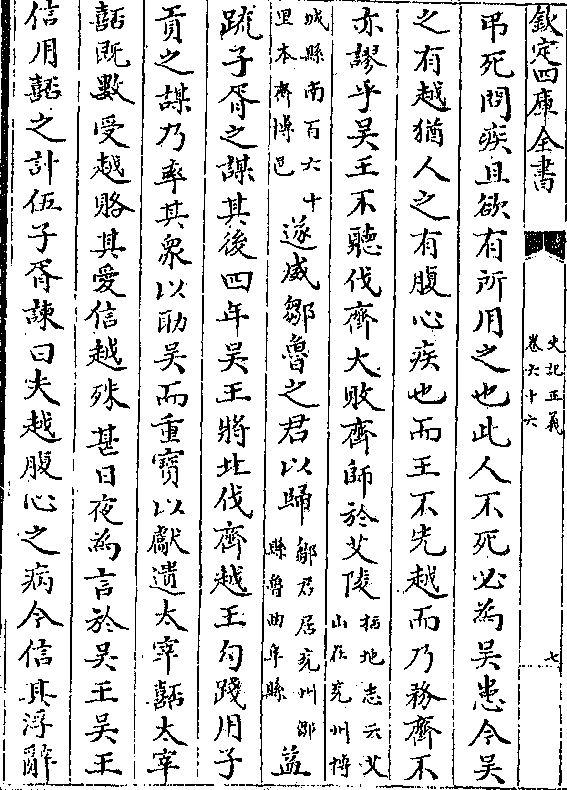 欽定四庫全書
史記正義
卷六十六
七
弔死問疾且欲有所用之也此人不死必為吳患今吳
之有越猶人之有腹心疾也而王不先越而乃務齊不
亦謬乎吳王不聽伐齊大敗齊師於艾陵括地志云艾
山在兖州博
城縣南百六十
里本齊博邑
遂威鄒魯之君以歸鄒君居兖州鄒
縣魯曲阜縣
益
疏子胥之謀其後四年吳王將北伐齊越王勾踐用子
貢之謀乃率其衆以助吳而重寶以獻遺太宰嚭太宰
嚭既數受越賂其愛信越殊甚日夜為言於吳王吳王
信用嚭之計伍子胥諫曰夫越腹心之病今信其浮辭